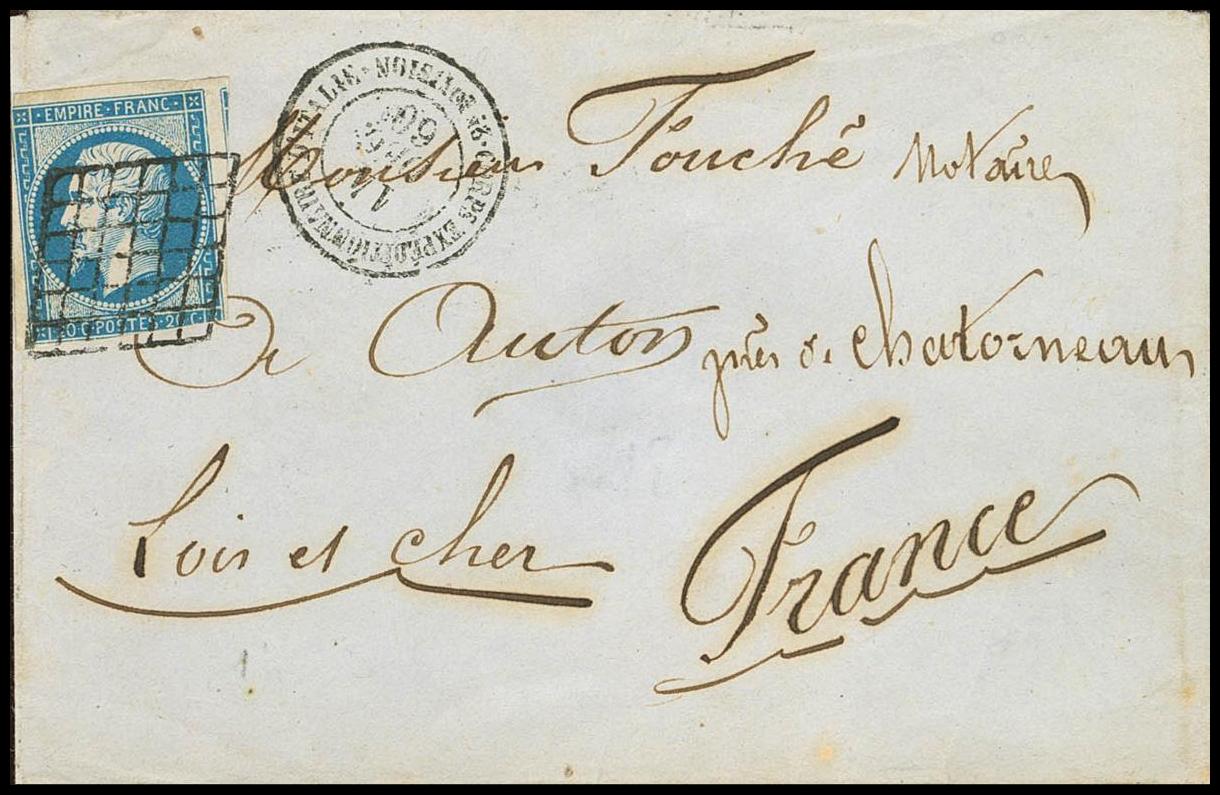 EMPIRE · FRANC ·
20 · C · POSTES · 20 · C ·
CORPS EXPÉDITIONNAIRE D'ITALIE · DIVISION
60
Monsieur Fouché Notaire
De Auton près de Chatorneaux
Loir et Cher
France